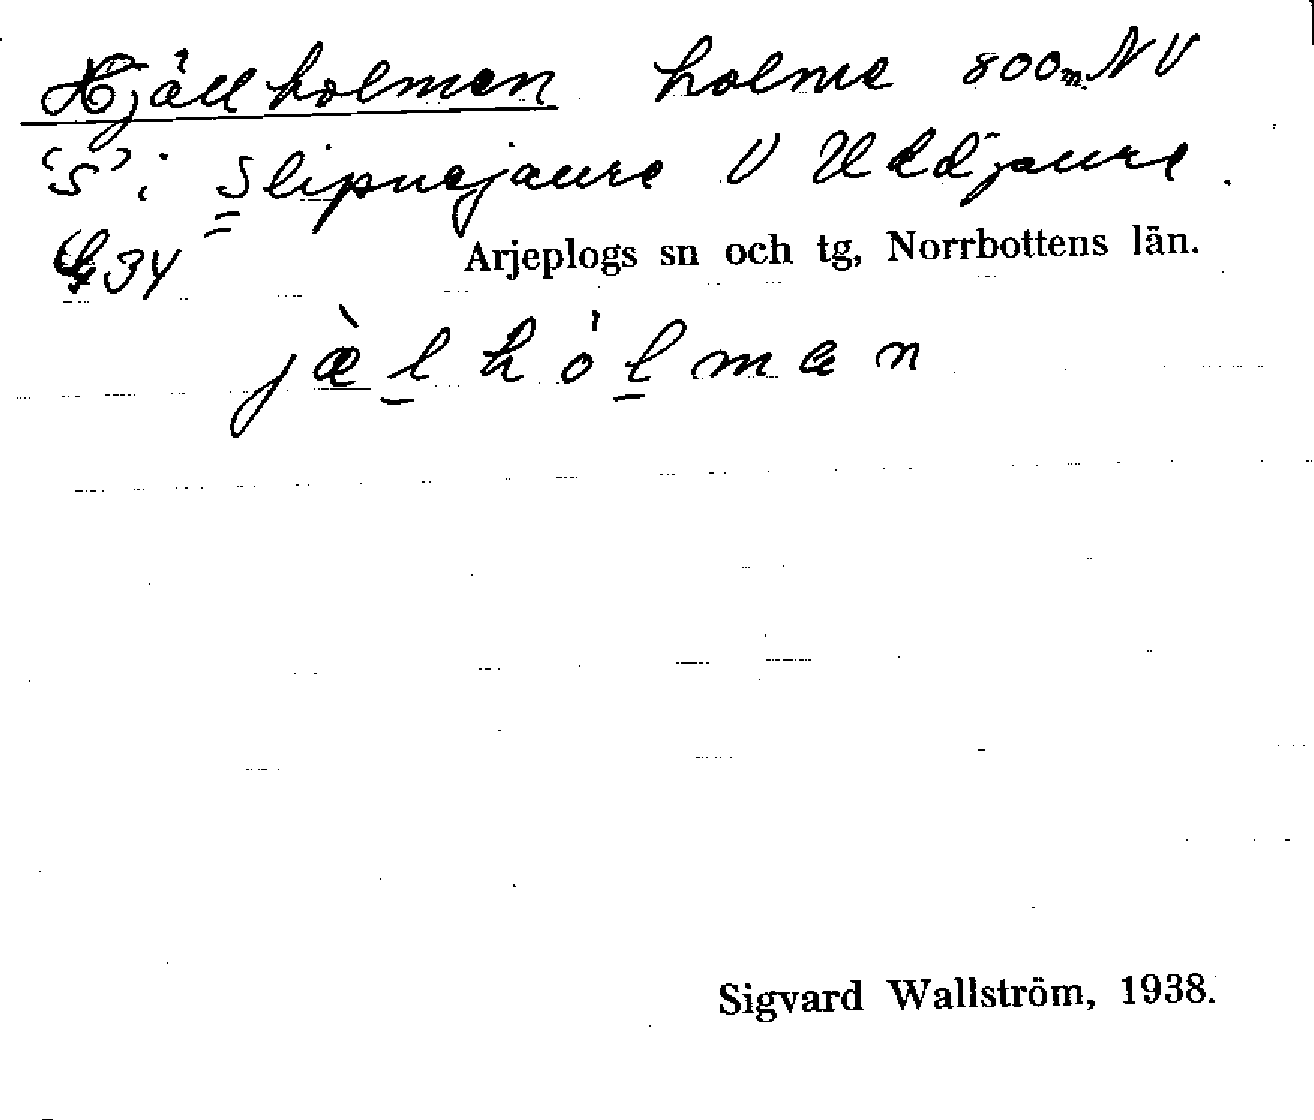 Hjällholmen holme 800m NV
"S" i Slipnejaure V Uddjaure.
G34 Arjeplogs sn och tg, Norrbottens län.
jæ̀l hólmæn
Sigvard Wallström, 1938.